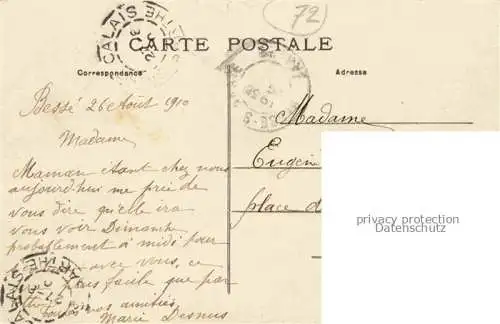 72
CARTE POSTALE
Correspondance
Adresse
Bessé 26 Août 1910
Madame
Maman étant chez nous
aujourd'hui me prie de
vous dire qu'elle ira
vous voir Dimanche
probablement à midi pour
avec vous, ce
plus facile que par
toutes nos amitiés
Marie Desnus
Madame
Eugén
place d
privacy protection
Datenschutz
CALAIS
CALAIS